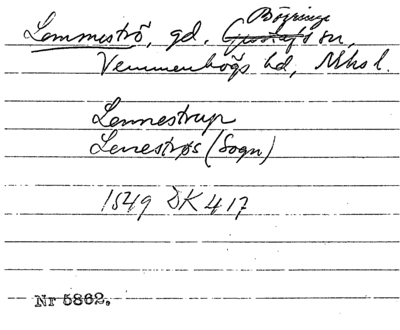 Lemmeströ, gd, Börringe
Gustafs sn,
Vemmenhögs hd, Mhs l.
Lennestrup
Lenestrøs (Sogn)
1549 DK 417
Nr 5862.